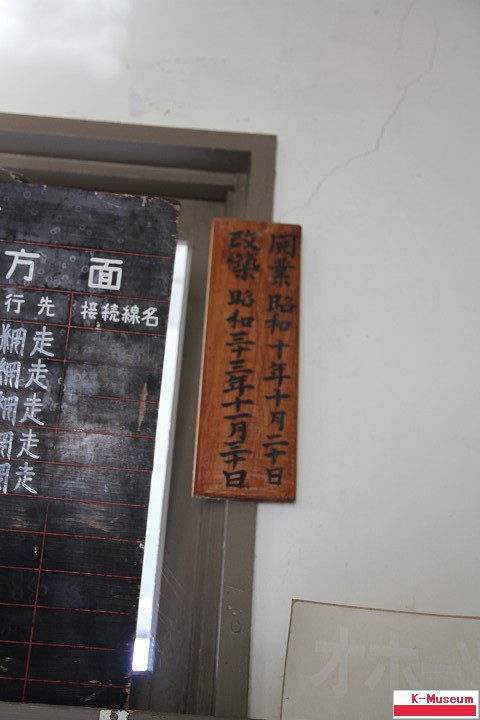 方面
行先 接続線名
網走
網走
網走
網走
網走
開業 昭和十年十月二十日
改築 昭和三十三年十一月三十日
オホーツ
K-Museum